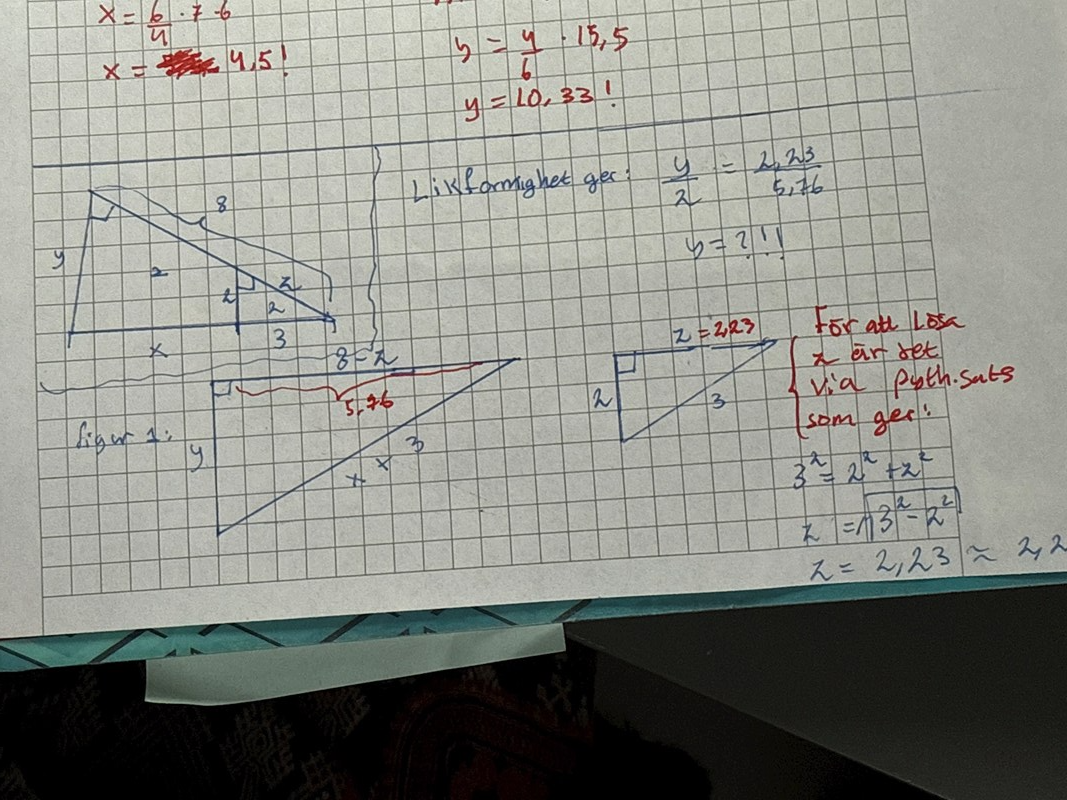 x = 6/4 · 7-6
x = 4,5!
y = 4/6 · 15,5
y = 10,33!
Likformighet ger: y/2 = 2,23/5,76
y = ?!!
8
y
2
2
z
2
x
3
8-z
5,76
figur 1:
y
x
x
3
z = 2,23
2
3
För att Lösa
z är det
via pyth.sats
som ger:
3² = 2² + z²
z = √3² - 2²
z = 2,23 ≈ 2,2